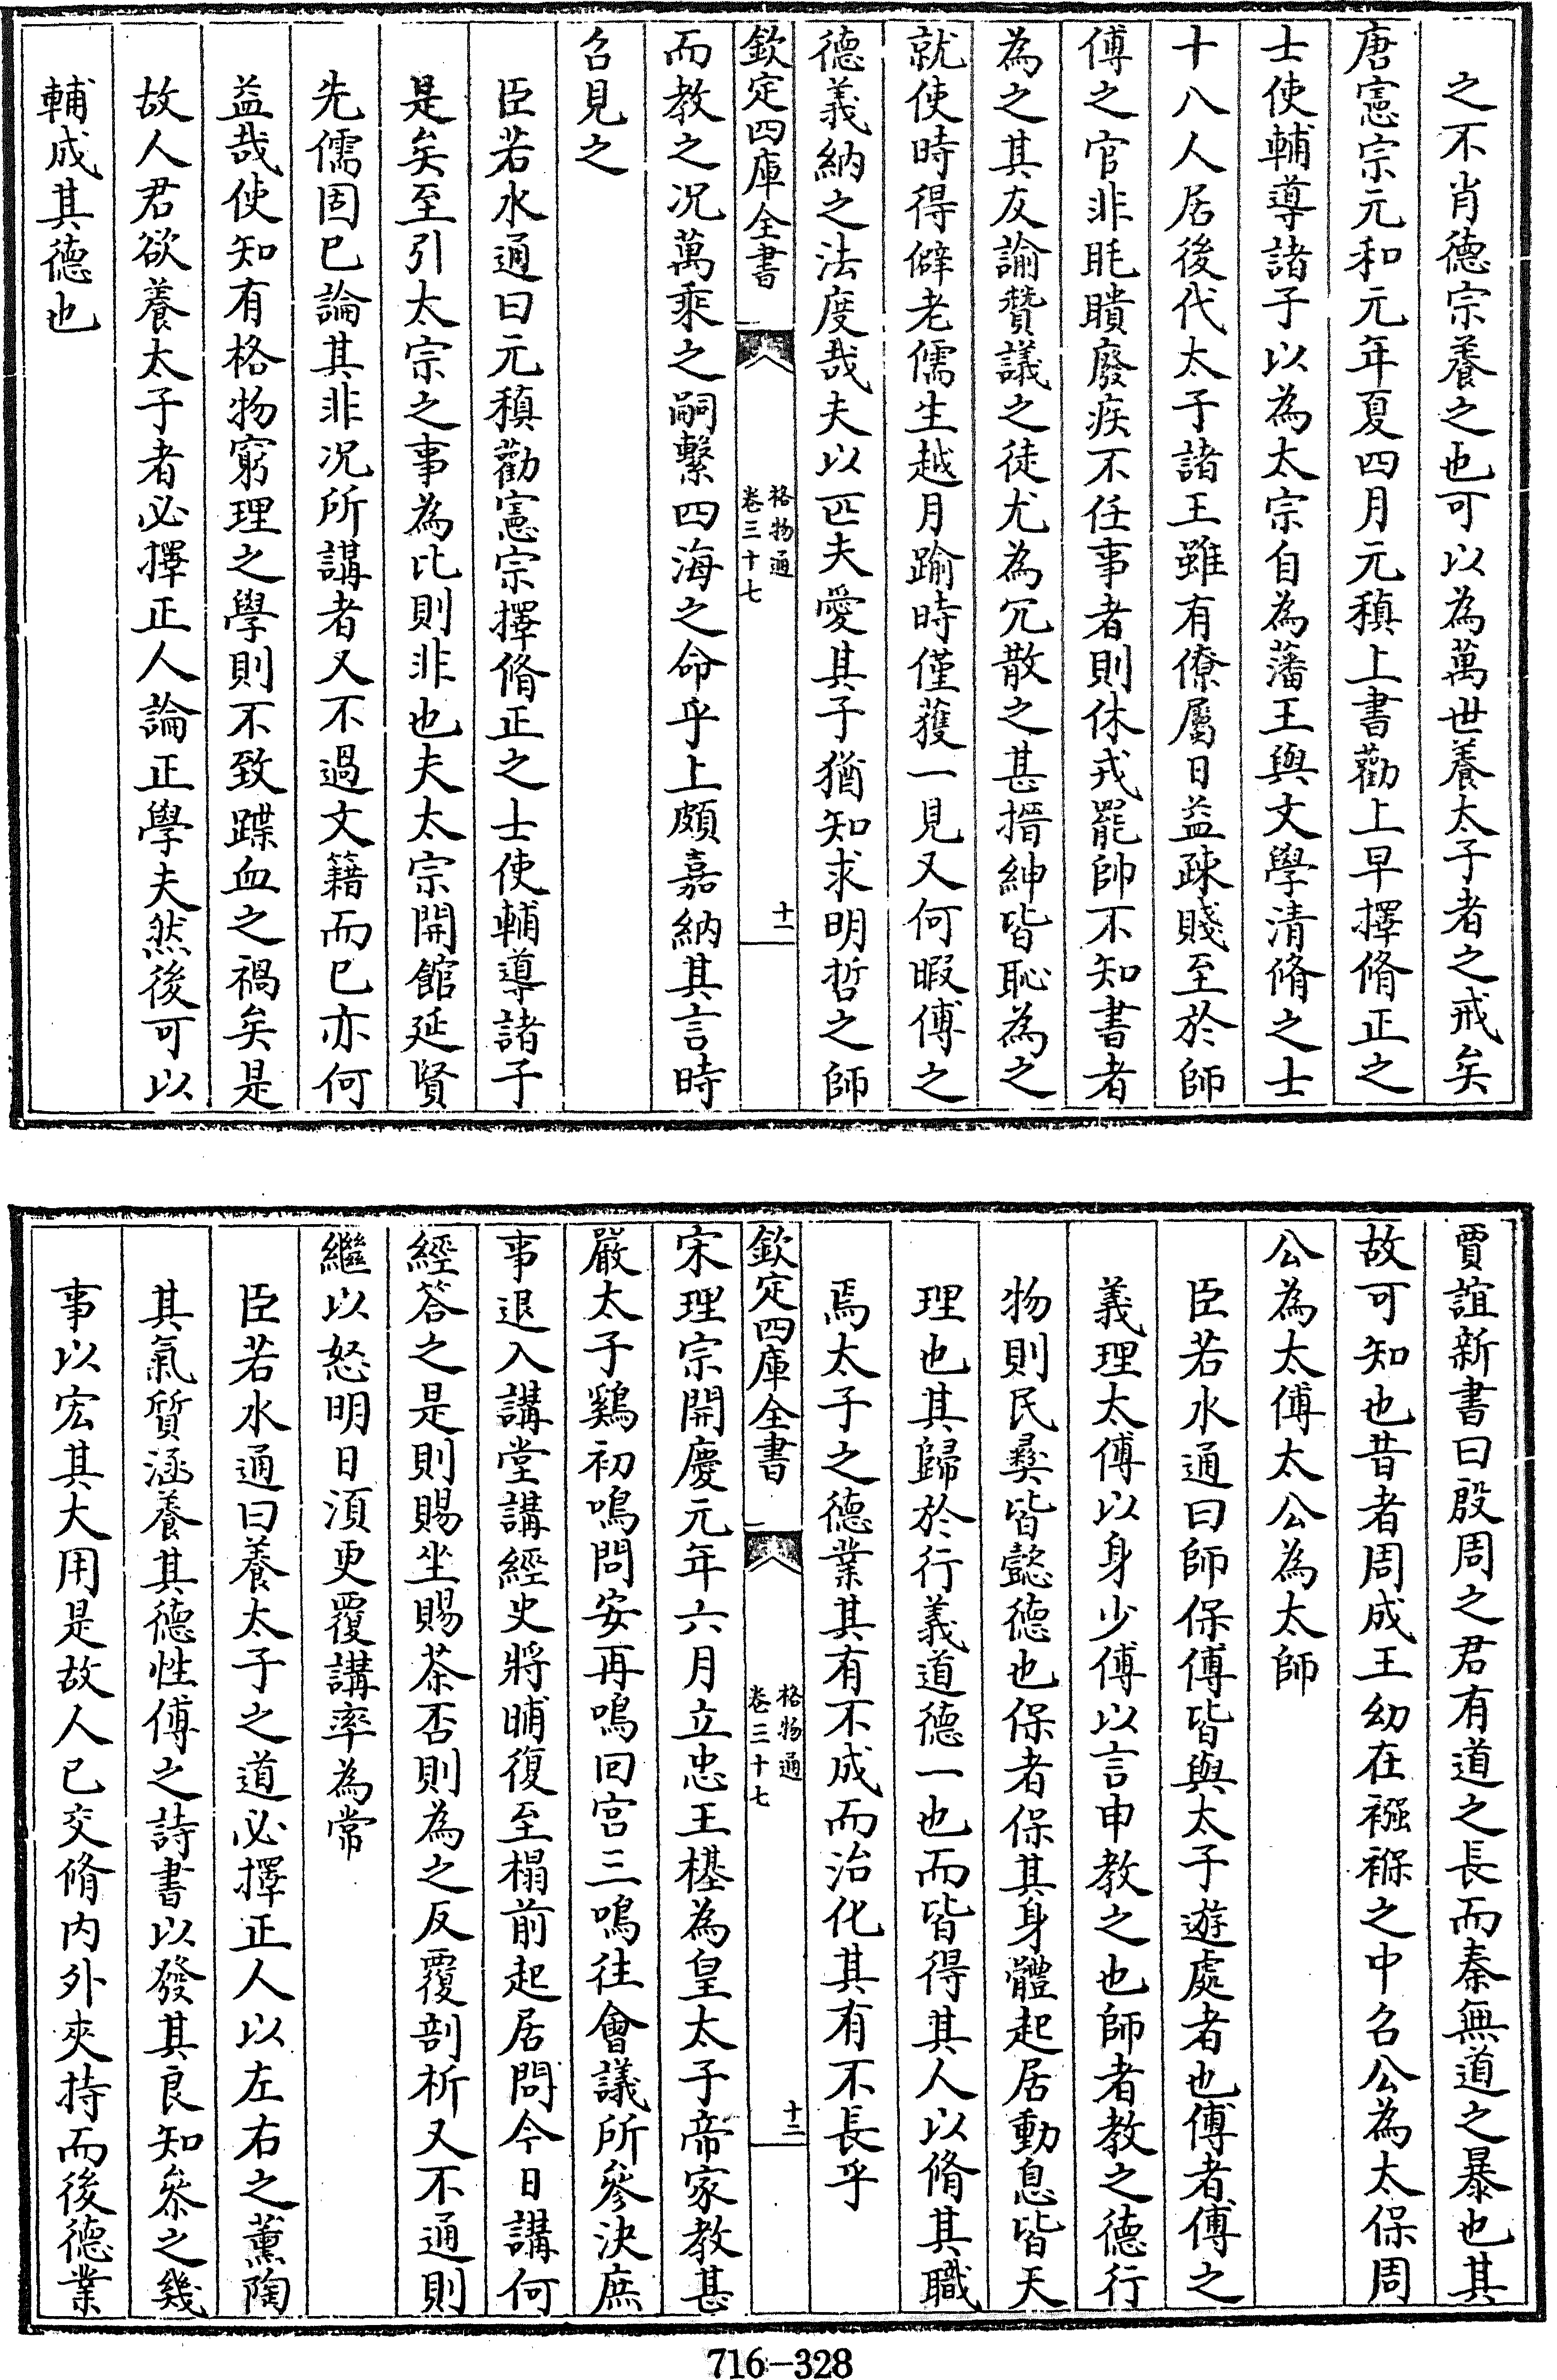 之不肖德宗養之也可以為萬世養太子者之戒矣
唐憲宗元和元年夏四月元稹上書勸上早擇脩正之
士使輔導諸子以為太宗自為藩王與文學清脩之士
十八人居後代太子諸王雖有僚屬日益疎賤至於師
傅之官非眊聵廢疾不任事者則休戎罷帥不知書者
為之其友諭贊議之徒尤為冗散之甚搢紳皆恥為之
就使時得僻老儒生越月踰時僅獲一見又何暇傅之
德義納之法度哉夫以匹夫愛其子猶知求明哲之師
欽定四庫全書
格物通
卷三十七
十一
而教之况萬乘之嗣繫四海之命乎上頗嘉納其言時
召見之
臣若水通曰元稹勸憲宗擇脩正之士使輔導諸子
是矣至引太宗之事為比則非也夫太宗開館延賢
先儒固已論其非况所講者又不過文籍而已亦何
益哉使知有格物窮理之學則不致蹀血之禍矣是
故人君欲養太子者必擇正人論正學夫然後可以
輔成其德也
賈誼新書曰殷周之君有道之長而秦無道之暴也其
故可知也昔者周成王幼在襁褓之中召公為太保周
公為太傅太公為太師
臣若水通曰師保傅皆與太子遊處者也傅者傅之
義理太傅以身少傅以言申教之也師者教之德行
物則民彜皆懿德也保者保其身體起居動息皆天
理也其歸於行義道德一也而皆得其人以脩其職
焉太子之德業其有不成而治化其有不長乎
欽定四庫全書
格物通
卷三十七
十二
宋理宗開慶元年六月立忠王禥為皇太子帝家教甚
嚴太子鷄初鳴問安再鳴回宫三鳴往會議所參決庶
事退入講堂講經史將晡復至榻前起居問今日講何
經答之是則賜坐賜茶否則為之反覆剖析又不通則
繼以怒明日須更覆講率為常
臣若水通曰養太子之道必擇正人以左右之薰陶
其氣質涵養其德性傅之詩書以發其良知叅之幾
事以宏其大用是故人已交脩内外夾持而後德業
716-328